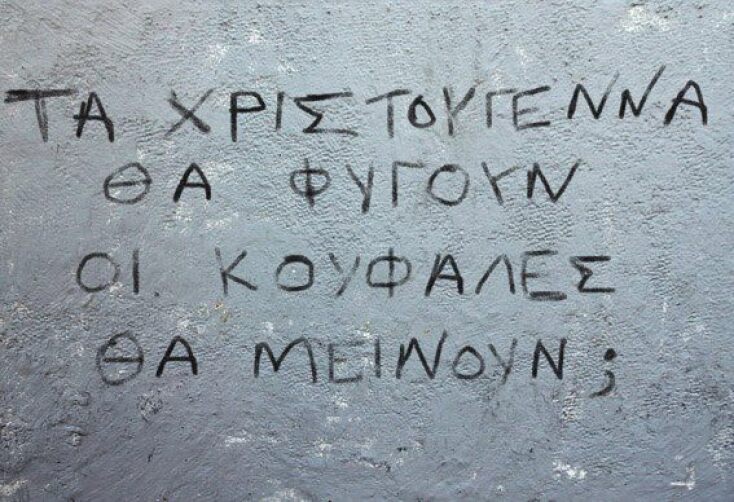 ΤΑ ΧΡΙΣΤΟΥΓΕΝΝΑ
ΘΑ ΦΥΓΟΥΝ
ΟΙ ΚΟΥΦΑΛΕΣ
ΘΑ ΜΕΙΝΟΥΝ;